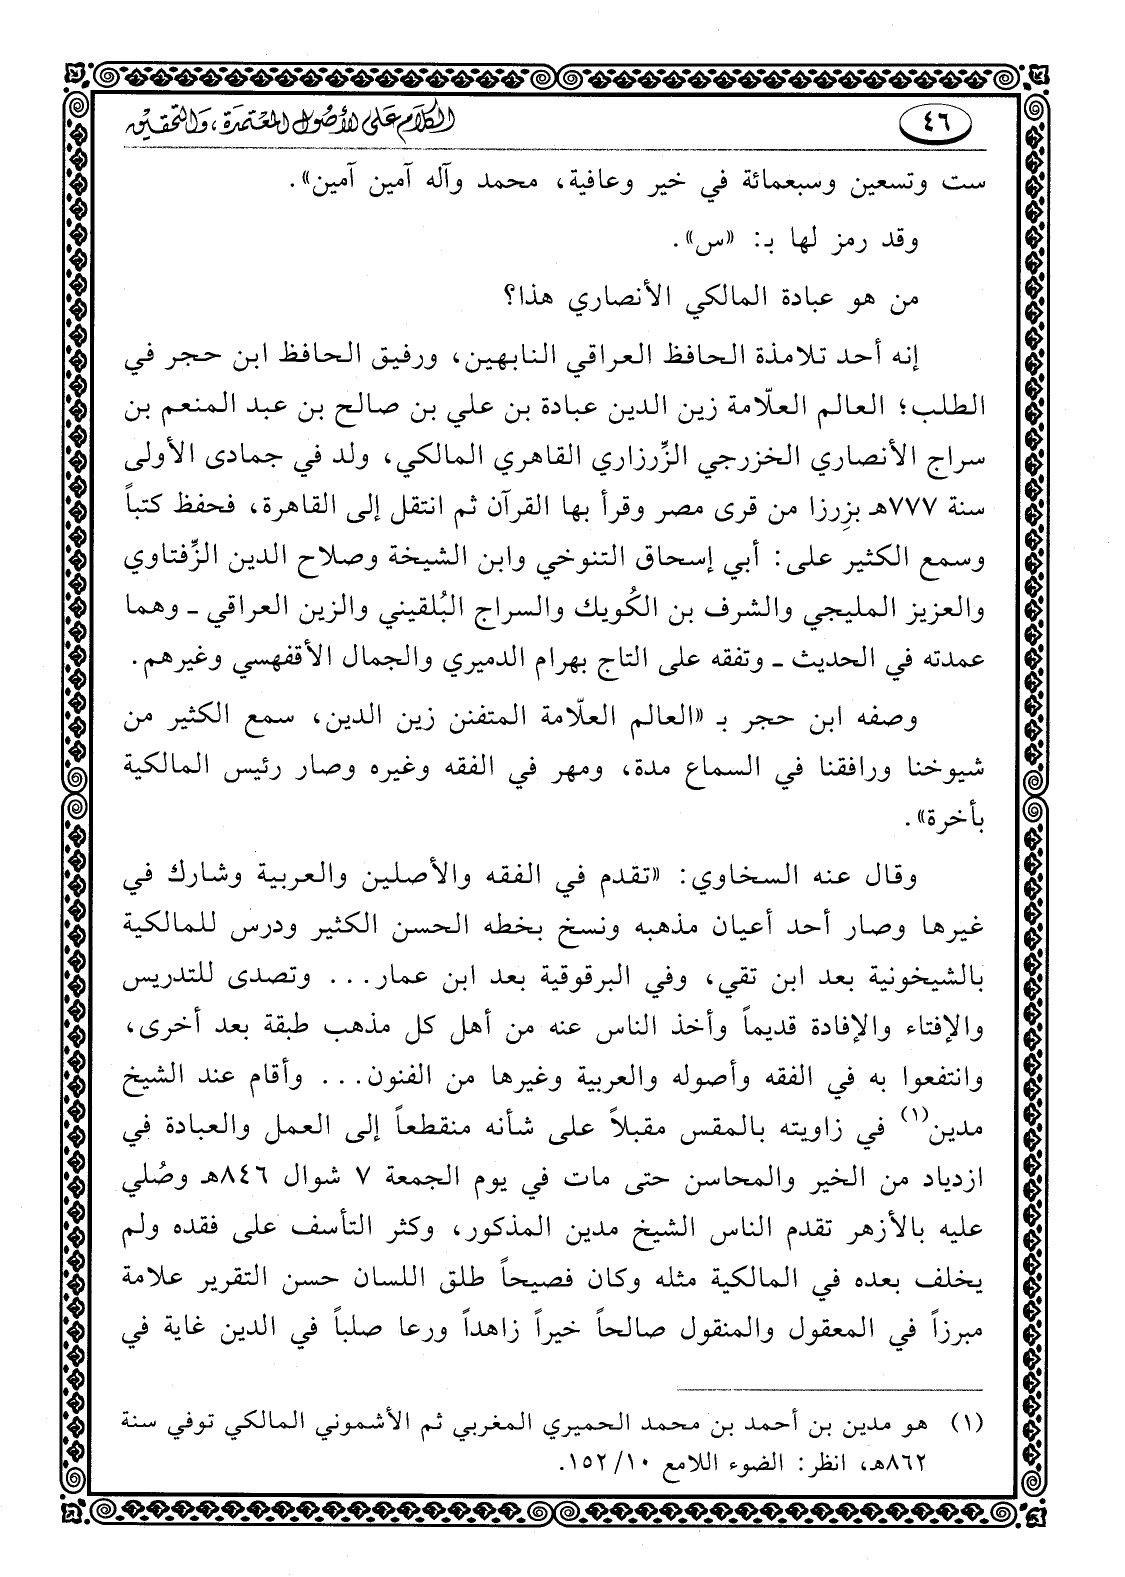 ٤٦
الكلام على الأصول المعتمدة، والتحقيق
ست وتسعين وسبعمائة في خير وعافية، محمد وآله آمين آمين».
وقد رمز لها بـ: «س».
من هو عبادة المالكي الأنصاري هذا؟
إنه أحد تلامذة الحافظ العراقي النابهين، ورفيق الحافظ ابن حجر في
الطلب؛ العالم العلّامة زين الدين عبادة بن علي بن صالح بن عبد المنعم بن
سراج الأنصاري الخزرجي الزِّرزاري القاهري المالكي، ولد في جمادى الأولى
سنة ٧٧٧هـ بزِرزا من قرى مصر وقرأ بها القرآن ثم انتقل إلى القاهرة، فحفظ كتباً
وسمع الكثير على: أبي إسحاق التنوخي وابن الشيخة وصلاح الدين الزِّفتاوي
والعزيز المليجي والشرف بن الكُويك والسراج البُلقيني والزين العراقي ـ وهما
عمدته في الحديث ـ وتفقه على التاج بهرام الدميري والجمال الأقفهسي وغيرهم.
وصفه ابن حجر بـ «العالم العلّامة المتفنن زين الدين، سمع الكثير من
شيوخنا ورافقنا في السماع مدة، ومهر في الفقه وغيره وصار رئيس المالكية
بأخرة».
وقال عنه السخاوي: «تقدم في الفقه والأصلين والعربية وشارك في
غيرها وصار أحد أعيان مذهبه ونسخ بخطه الحسن الكثير ودرس للمالكية
بالشيخونية بعد ابن تقي، وفي البرقوقية بعد ابن عمار... وتصدى للتدريس
والإفتاء والإفادة قديماً وأخذ الناس عنه من أهل كل مذهب طبقة بعد أخرى،
وانتفعوا به في الفقه وأصوله والعربية وغيرها من الفنون... وأقام عند الشيخ
مدين(١) في زاويته بالمقس مقبلاً على شأنه منقطعاً إلى العمل والعبادة في
ازدياد من الخير والمحاسن حتى مات في يوم الجمعة ٧ شوال ٨٤٦هـ وصُلي
عليه بالأزهر تقدم الناس الشيخ مدين المذكور، وكثر التأسف على فقده ولم
يخلف بعده في المالكية مثله وكان فصيحاً طلق اللسان حسن التقرير علامة
مبرزاً في المعقول والمنقول صالحاً خيراً زاهداً ورعا صلباً في الدين غاية في
(١) هو مدين بن أحمد بن محمد الحميري المغربي ثم الأشموني المالكي توفي سنة
٨٦٢هـ، انظر: الضوء اللامع ١٠/ ١٥٢.